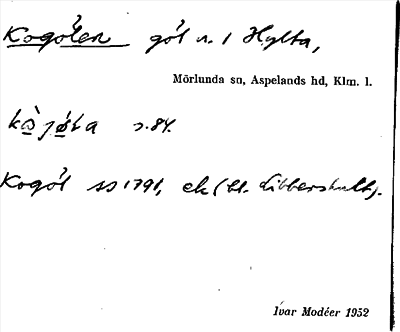 Kogölen göl n. 1 Hylta,
Mörlunda sn, Aspelands hd, Klm. l.
s. 84.
Kogöl SS 1791, ek (bl. Libbershult).
Ivar Modéer 1952